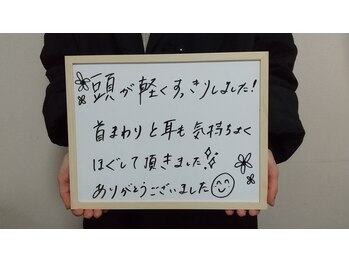 頭が軽くすっきりしました!
首まわりと耳も気持ちよく
ほぐして頂きました!!
ありがとうございました